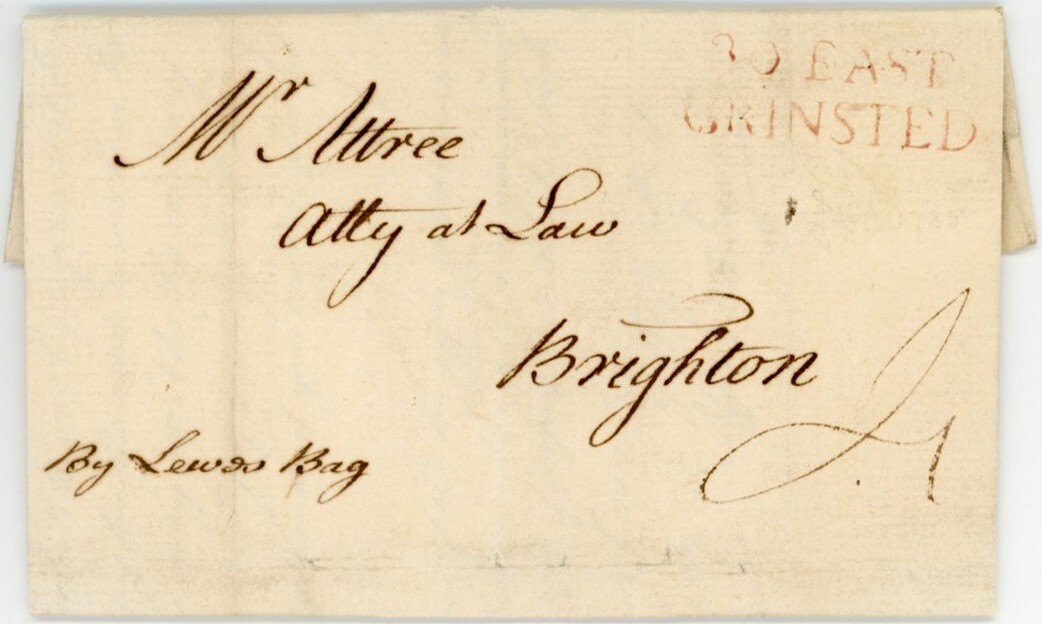 30 EAST
GRINSTED
Mr Attree
Atty at Law
Brighton
By Lewes Bag
4